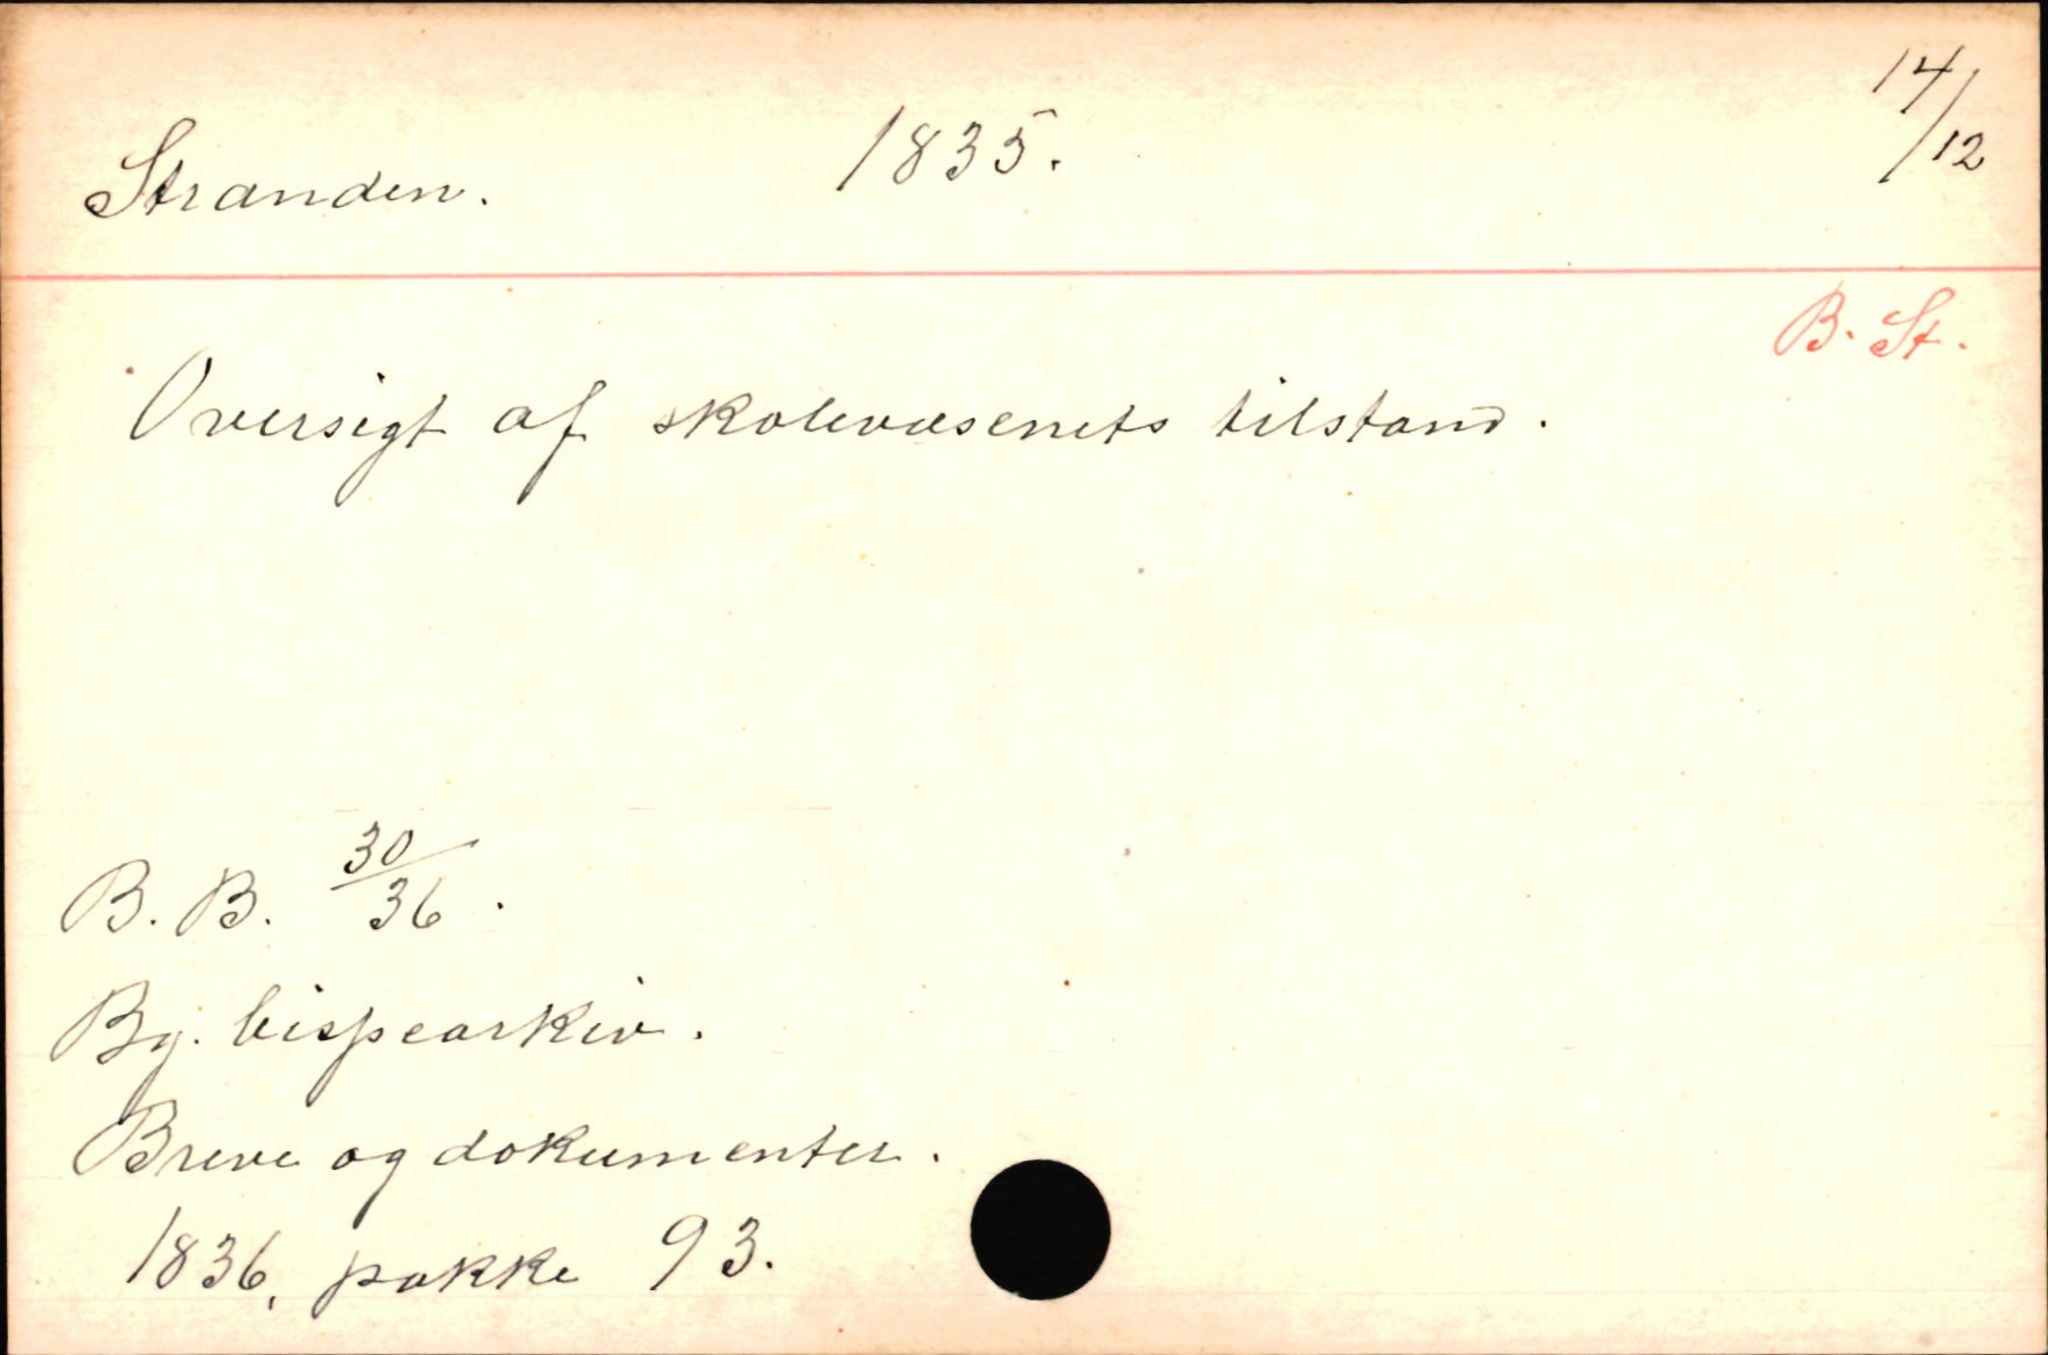 Stranden. 1835. 14/12
B. St.
Oversigt af skolevæsenets tilstand.
B. B. 30/36.
Bg. bispearkiv.
Breve og dokumenter.
1836, pakke 93.